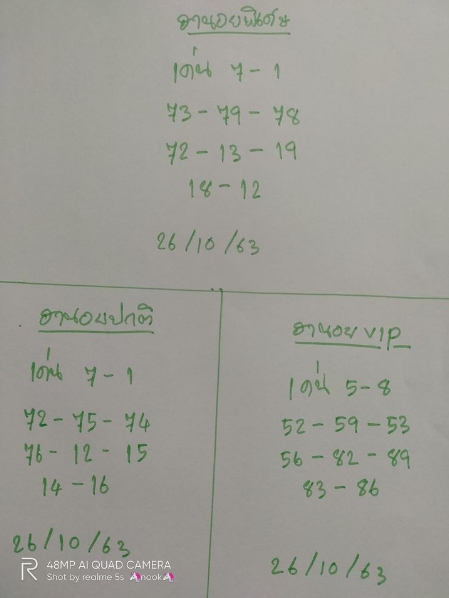 ฮานอยพิเศษ
เด่น 7-1
73-79-78
72-13-19
18-12
26/10/63
ฮานอยปกติ
เด่น 7-1
72-75-74
76-12-15
14-16
26/10/63
ฮานอย VIP
เด่น 5-8
52-59-53
56-82-89
83-86
26/10/63
48MP AI QUAD CAMERA
Shot by realme 5s AnookA